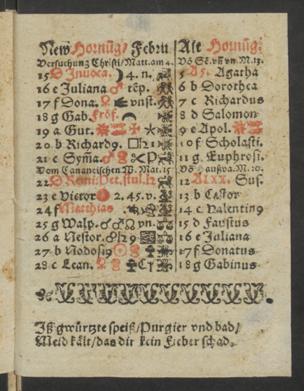 New Hornũg/ Febru Alt Hornũg.
Versuchung Christi/Matt.am 4.
15 D Invoca. 4. n. 5 A5. Agatha
16 e Juliana rẽp. 6 b Dorothea
17 f Dona. vnst. 7 c Richardus
18 g Gab. Frõf. 8 d Salomon
19 a Gut. 9 e Apol.
20 b Richard9. 10 f Scholasti.
21 c Sym̃a. 11 g. Euphrosi.
Vom Cananeischen W. Mat.15
22 D Rem: Pet. stul. 12 ALXX. Sus.
23 e Victor 2. 45. v. 13 b Castor
24 f Matthias 14 c Valentin9
25 g Walp. vn. 15 d Faustus
26 a Nestor. 16 e Juliana
27 b 17 f Donatus
28 c Lean. 18 g Gabinus
Jß gwürtzte speiß/Purgier vnd bad/
Meid kält/das dir kein Fieber schad.